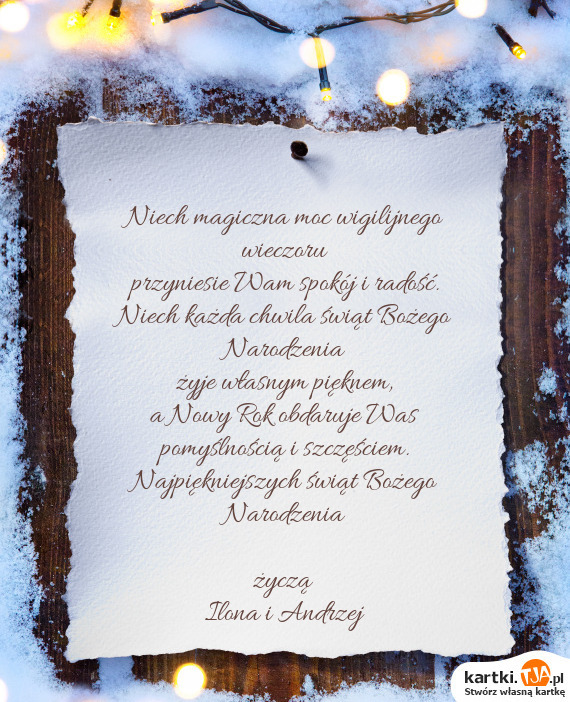 Niech magiczna moc wigilijnego
wieczoru
przyniesie Wam spokój i radość.
Niech każda chwila świąt Bożego
Narodzenia
żyje własnym pięknem,
a Nowy Rok obdaruje Was
pomyślnością i szczęściem.
Najpiękniejszych świąt Bożego
Narodzenia
życzą
Ilona i Andrzej
kartki.TJA.pl
Stwórz własną kartkę